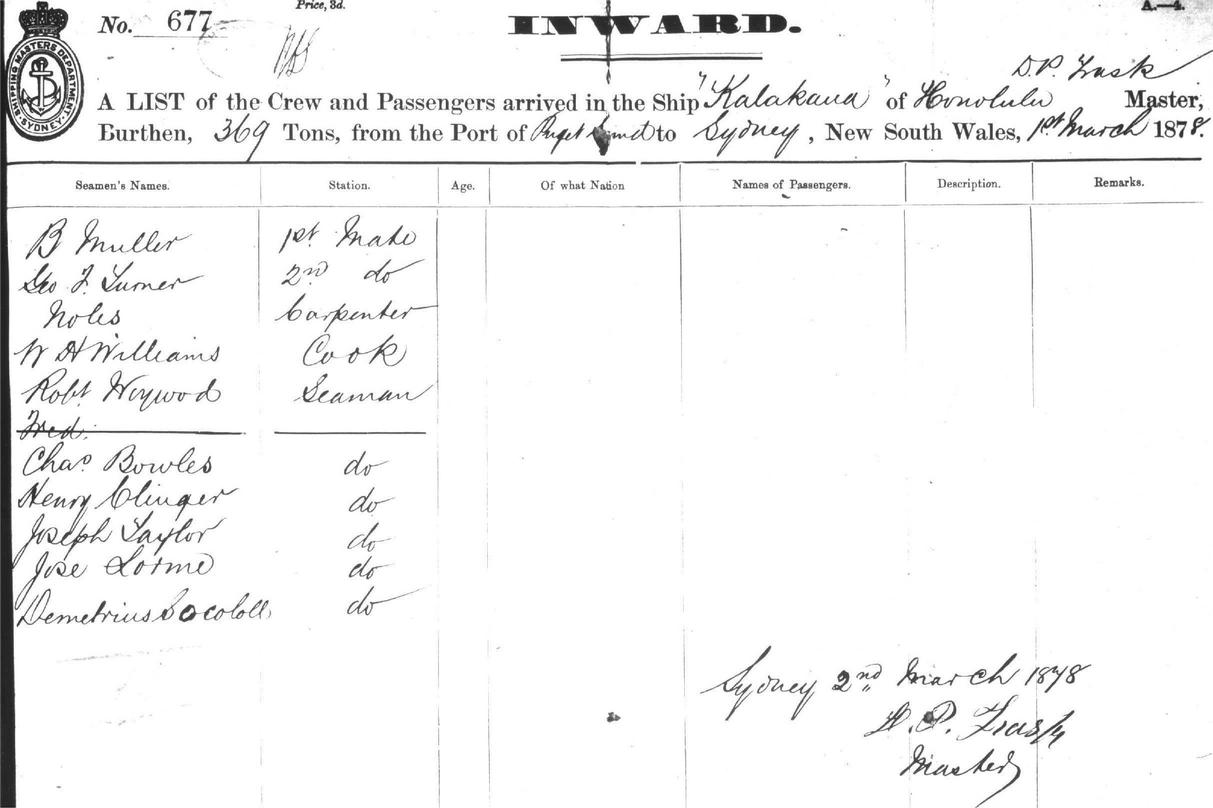 Price, 3d.
A.—4.
No. 677
INWARD.
SHIPPING MASTERS DEPARTMENT SYDNEY
D.P. Trask
A LIST of the Crew and Passengers arrived in the Ship "Kalakaua" of Honolulu Master,
Burthen, 369 Tons, from the Port of Puget Sound to Sydney, New South Wales, 1st March 1878.
Seamen's Names. Station. Age. Of what Nation Names of Passengers. Description. Remarks.
B Muller 1st Mate
Geo F. Turner 2nd do
Noles Carpenter
W H Williams Cook
Robt Woywod Seaman
Fred.
Chas Bowles do
Henry Clinger do
Joseph Taylor do
Jose Lorme do
Demetrius do
Sydney 2nd March 1878
D. P. Trask
Master